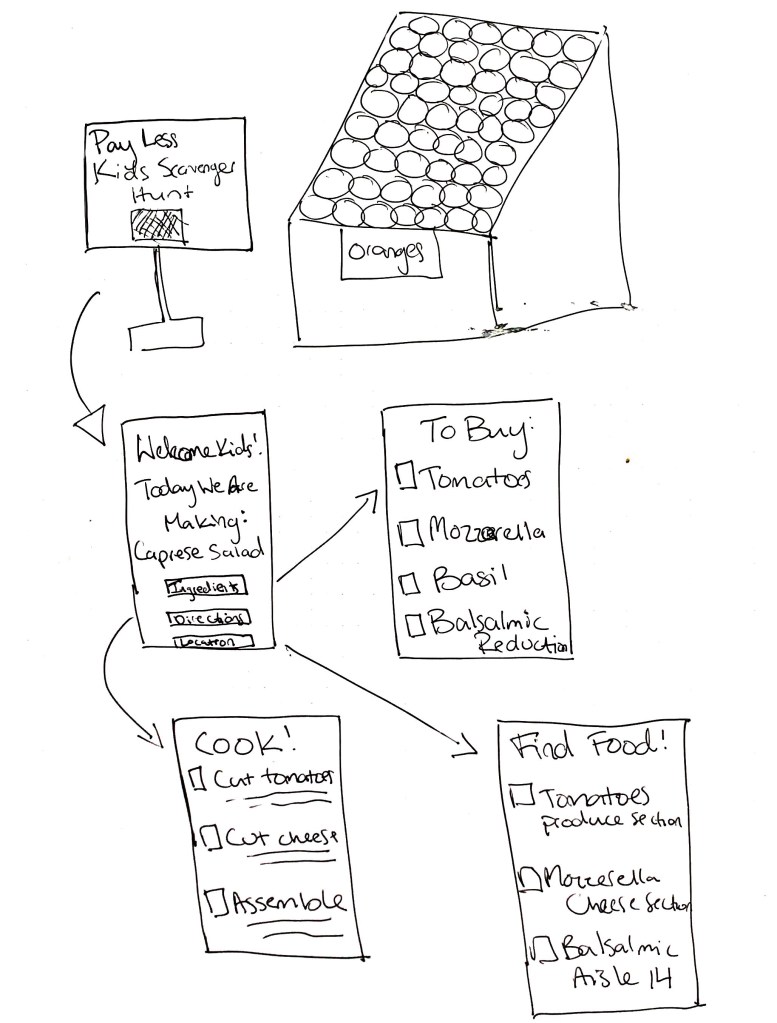 Pay Less
Kids Scavenger
Hunt
Oranges
Welcome Kids!
Today We Are
Making:
Caprese Salad
Ingredients
Directions
Location
To Buy:
Tomatoes
Mozzarella
Basil
Balsalmic
Reduction
Cook!
Cut tomatoes
Cut cheese
Assemble
Find Food!
Tomatoes
produce section
Mozzerella
Cheese Section
Balsalmic
Aisle 14